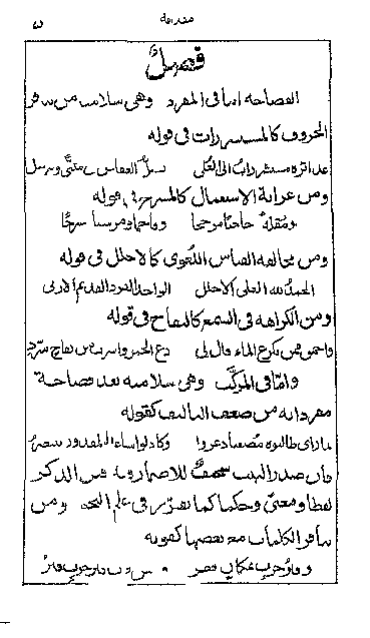 مقدمة ٥
فصل
الفصاحة اما فى المفرد وهى سلامته من تنافر
الحروف كالمستشزرات فى قوله
غدائره مستشزرات الى العلى تضل العقاص فى مثنى ومرسل
ومن غرابة الاستعمال كالمسرج فى قوله
ومقلة وحاجبا مزججا وفاحما ومرسنا مسرجا
ومن مخالفة القياس اللغوى كالاجلل فى قوله
الحمد لله العلى الاجلل الواحد الفرد القديم الاولى
ومن الكراهة فى السمع كالنقاخ فى قوله
واحمق ممن يكرع الماء قال لى دع الخمر واشرب من نقاخ مبرد
واما فى المركب وهى سلامته بعد فصاحة
مفرداته من ضعف التاليف كقوله
لما راى طالبوه مصعبا ذعروا وكاد لو ساعد المقدور ينتصر
فان صدر البيت ضعيف للاضمار قبل الذكر
لفظا ومعنى وحكما كما تقرر فى علم النحو ومن
تنافر الكلمات مع بعضها كقوله
وقبر حرب بمكان قفر قرب قبر حرب قبر